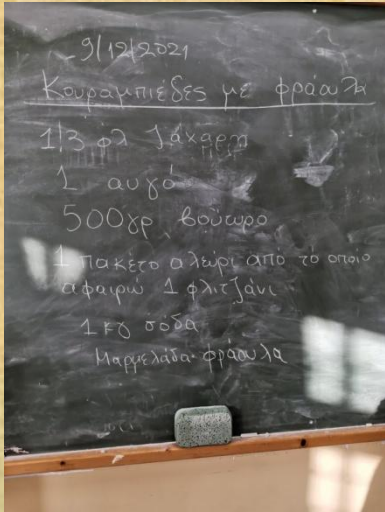 9/12/2021
Κουραμπιέδες με φράουλα
1/3 φλ ζάχαρη
1 αυγό
500γρ βούτυρο
1 πακέτο αλεύρι από το οποίο
αφαιρώ 1 φλιτζάνι
1 κγ σόδα
Μαρμελάδα φράουλα